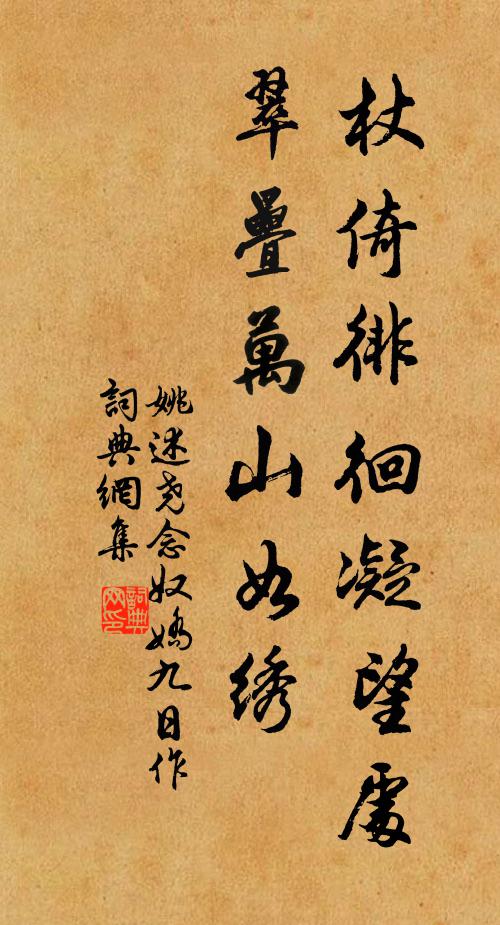 杖倚徘徊凝望處
翠疊萬山如綉
姚述堯念奴嬌九日作
詞典網集
詞典
网印